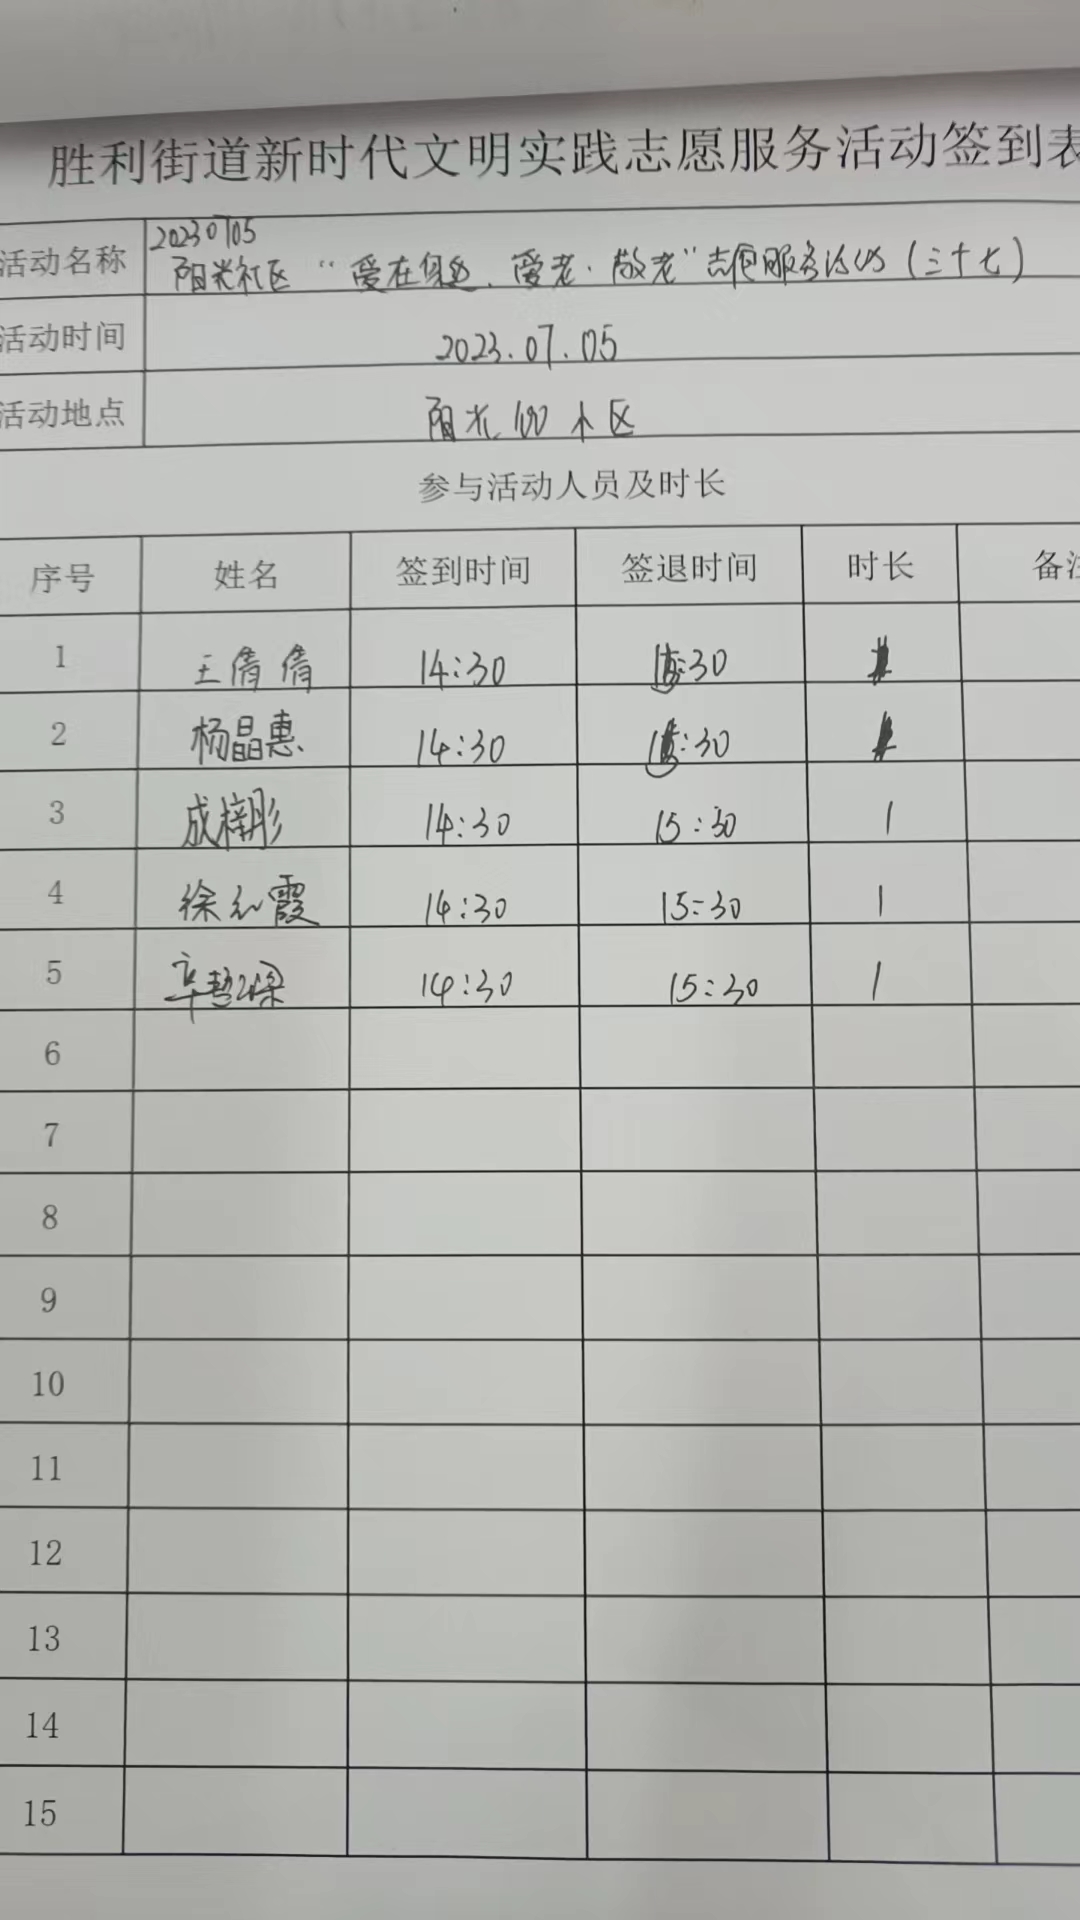 胜利街道新时代文明实践志愿服务活动签到表
活动名称 20230705
阳光社区“爱在身边、爱老·敬老”志愿服务活动(三十七)
活动时间 2023.07.05
活动地点 阳光100小区
参与活动人员及时长
序号 姓名 签到时间 签退时间 时长 备注
1 王倩倩 14:30 :30
2 杨晶惠 14:30 :30
3 成梓彤 14:30 15:30 1
4 徐红霞 14:30 15:30 1
5 辛 14:30 15:30 1
6
7
8
9
10
11
12
13
14
15